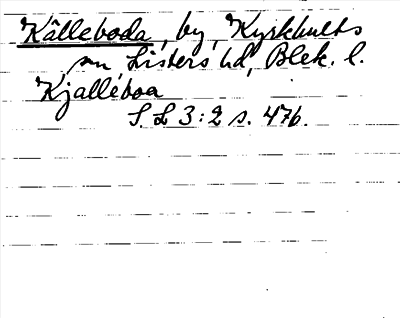 Kålleboda, by, Kyrkhults
sn Listers hd, Blek. l.
Kjalléboa
S. L 3:2 s. 476.